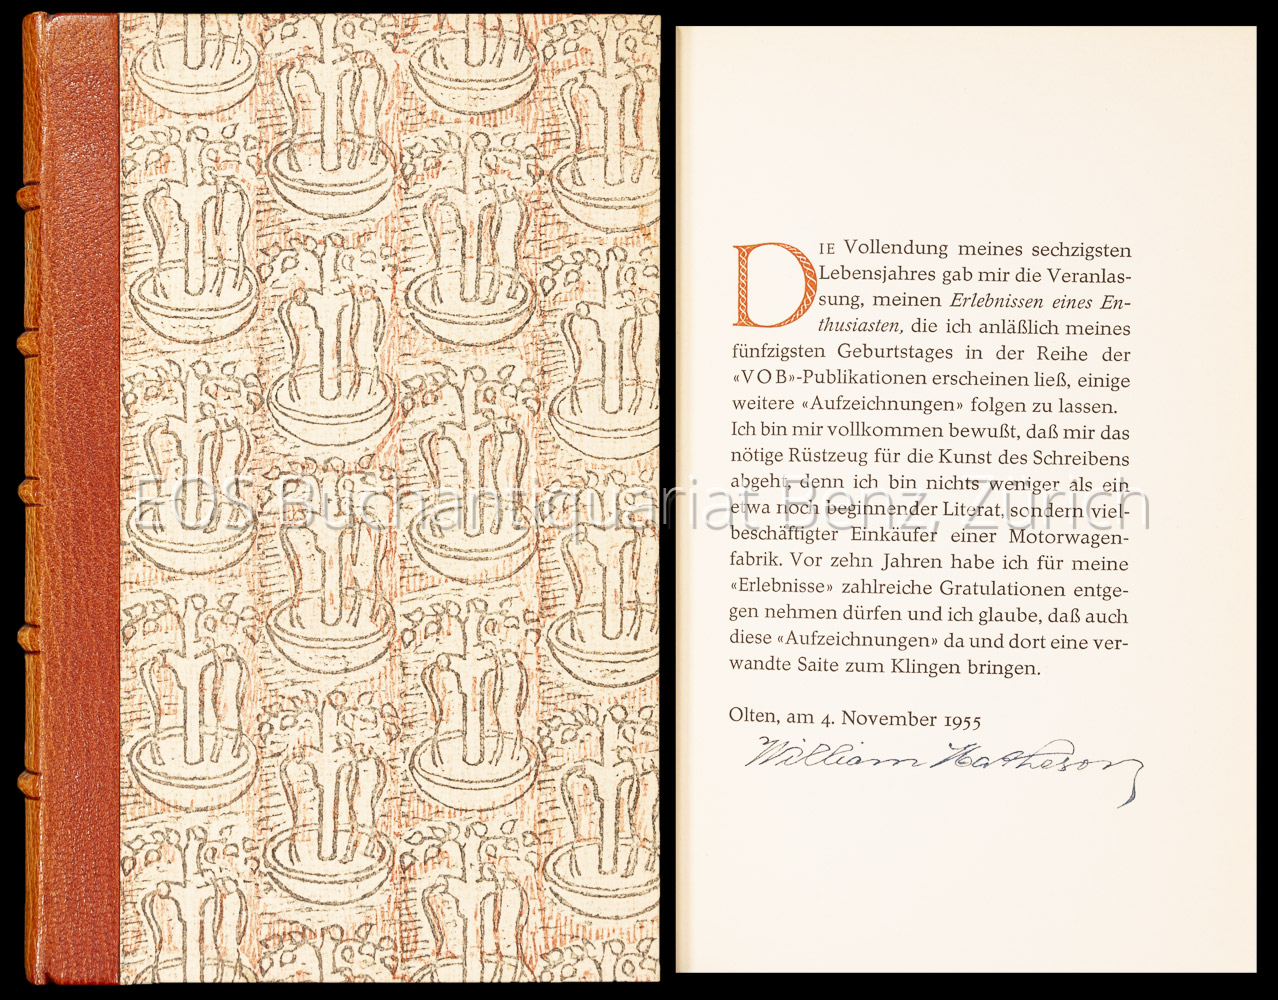 DIE Vollendung meines sechzigsten
Lebensjahres gab mir die Veranlas-
sung, meinen Erlebnissen eines En-
thusiasten, die ich anläßlich meines
fünfzigsten Geburtstages in der Reihe der
«VOB»-Publikationen erscheinen ließ, einige
weitere «Aufzeichnungen» folgen zu lassen.
Ich bin mir vollkommen bewußt, daß mir das
nötige Rüstzeug für die Kunst des Schreibens
abgeht, denn ich bin nichts weniger als ein
etwa noch beginnender Literat, sondern viel-
beschäftigter Einkäufer einer Motorwagen-
fabrik. Vor zehn Jahren habe ich für meine
«Erlebnisse» zahlreiche Gratulationen entge-
gen nehmen dürfen und ich glaube, daß auch
diese «Aufzeichnungen» da und dort eine ver-
wandte Saite zum Klingen bringen.
Olten, am 4. November 1955
William Matheson
EOS Buchantiquariat Benz, Zürich